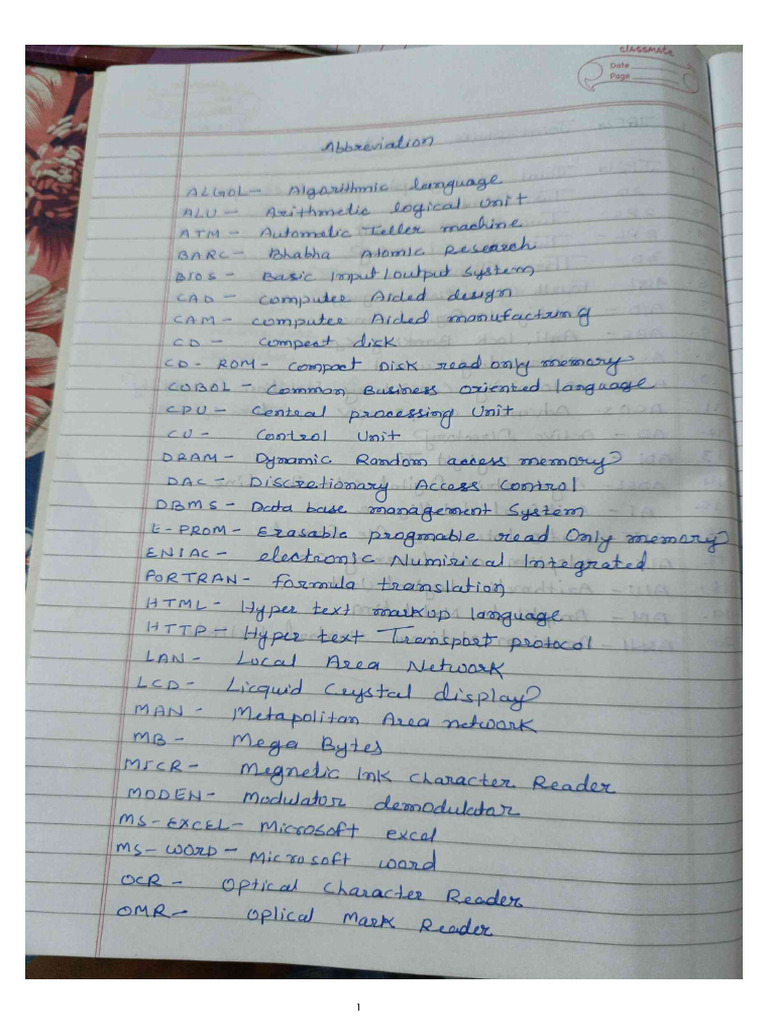 classmate
Date
Page
Abbreviation
ALGOL - Algorithmic language
ALU - Arithmetic logical Unit
ATM - Automatic Teller machine
BARC - Bhabha Atomic Research
BIOS - Basic input/output System
CAD - Computer Aided design
CAM - Computer Aided manufactring
CD - Compact disk
CD-ROM - Compact Disk read only memory
COBOL - Common Business oriented language
CPU - Central processing Unit
CU - Control Unit
DRAM - Dynamic Random access memory
DAC - Discretionary Access Control
DBMS - Data base management System
E-PROM - Erasable progmable read Only memory
ENIAC - electronic Numirical Integrated
FORTRAN - formula translation
HTML - Hyper text markup language
HTTP - Hyper text Transport protocol
LAN - Local Area Network
LCD - Licquid Crystal display
MAN - Metapolitan Area network
MB - Mega Bytes
MICR - Megnetic Ink Character Reader
MODEN - Modulator demodulator
MS-EXCEL - Microsoft excel
MS-WORD - Microsoft word
OCR - Optical Character Reader
OMR - Oplical Mark Reader
1